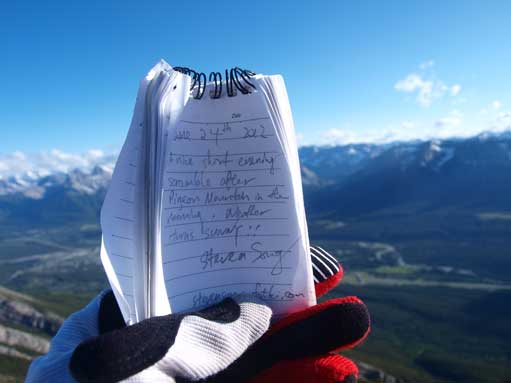 June 24th 2012
A nice short evening
scramble after
Pigeon Mountain in the
morning. Weather
turns sunny!!
Steven Song